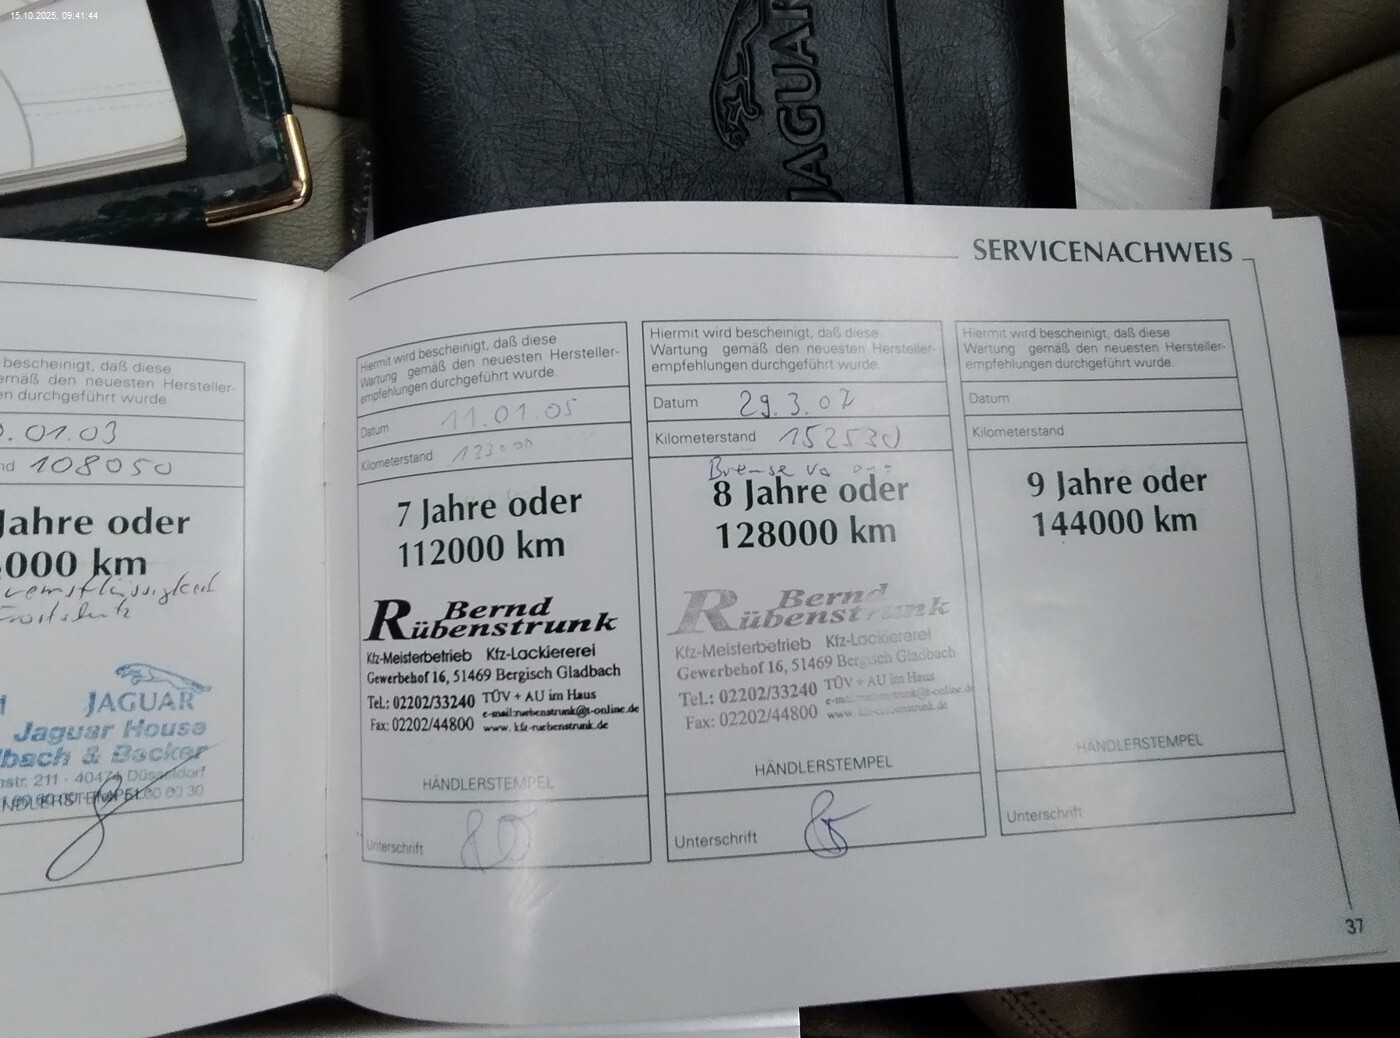 15.10.2025, 09:41:44
JAGUAR
SERVICENACHWEIS
bescheinigt, daß diese
emäß den neuesten Hersteller-
en durchgeführt wurde.
.01.03
nd 108050
Jahre oder
000 km
JAGUAR
Jaguar House
lbach & Becker
nstr. 211 · 40474 Düsseldorf
NDLERSTEMPEL
Hiermit wird bescheinigt, daß diese
Wartung gemäß den neuesten Hersteller-
empfehlungen durchgeführt wurde.
Datum 11.01.05
Kilometerstand
7 Jahre oder
112000 km
Bernd
Rübenstrunk
Kfz-Meisterbetrieb Kfz-Lackiererei
Gewerbehof 16, 51469 Bergisch Gladbach
Tel.: 02202/33240 TÜV + AU im Haus
Fax: 02202/44800 e-mail:ruebenstrunk@t-online.de
www. kfz-ruebenstrunk.de
HÄNDLERSTEMPEL
Unterschrift
Hiermit wird bescheinigt, daß diese
Wartung gemäß den neuesten Hersteller-
empfehlungen durchgeführt wurde.
Datum 29.3.07
Kilometerstand 152530
Bremse
8 Jahre oder
128000 km
Bernd
Rübenstrunk
Kfz-Meisterbetrieb Kfz-Lackiererei
Gewerbehof 16, 51469 Bergisch Gladbach
Tel.: 02202/33240 TÜV + AU im Haus
Fax: 02202/44800
HÄNDLERSTEMPEL
Unterschrift
Hiermit wird bescheinigt, daß diese
Wartung gemäß den neuesten Hersteller-
empfehlungen durchgeführt wurde.
Datum
Kilometerstand
9 Jahre oder
144000 km
HÄNDLERSTEMPEL
Unterschrift
37